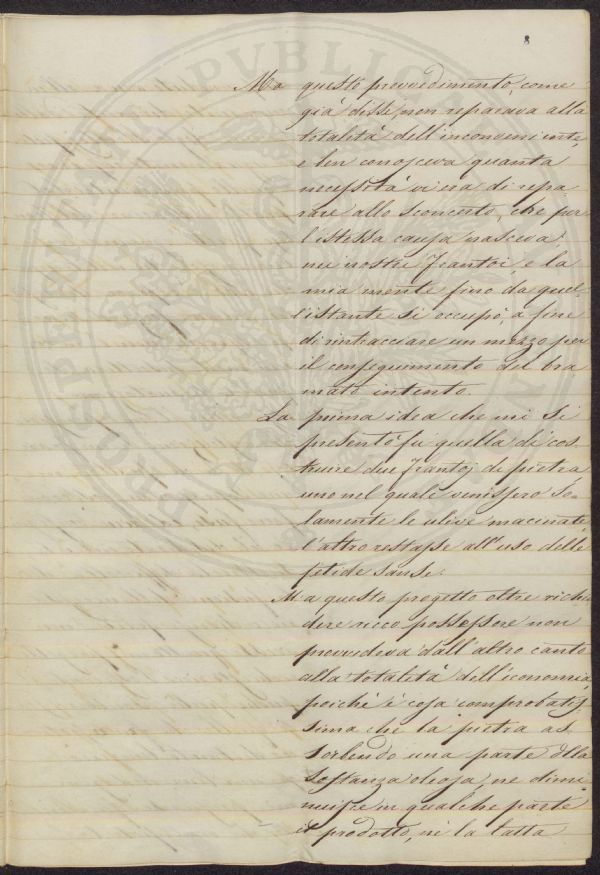 8
Ma questo provvedimento, come
già dissi, non reparava alla
totalità dell'inconveniente,
e ben conosceva quanta
necessità vi era di repa
rare allo sconcerto, che per
l'istessa causa nasceva
nei nostri Frantoi, e la
mia mente fino da quel
l'istante si occupò, a fine
di rintracciare un mezzo per
il conseguimento del bra
mato intento.
La prima idea che mi si
presentò fù quella di cos
truire due frantoj di pietra
uno nel quale venissero So
lamente le ulive macinate,
l'altro restasse all'uso delle
fetide sanse.
Ma questo progetto oltre richie
dere ricco possessore non
provvedeva dall'altro canto
alla totalità dell'economia,
poichè è cosa comprobatis
sima che la pietra as
sorbendo una parte della
sostanza oleosa, ne dimi
nuisce in qualche parte
il prodotto, nè la tatta
PROSPERITATI PVBLICAE